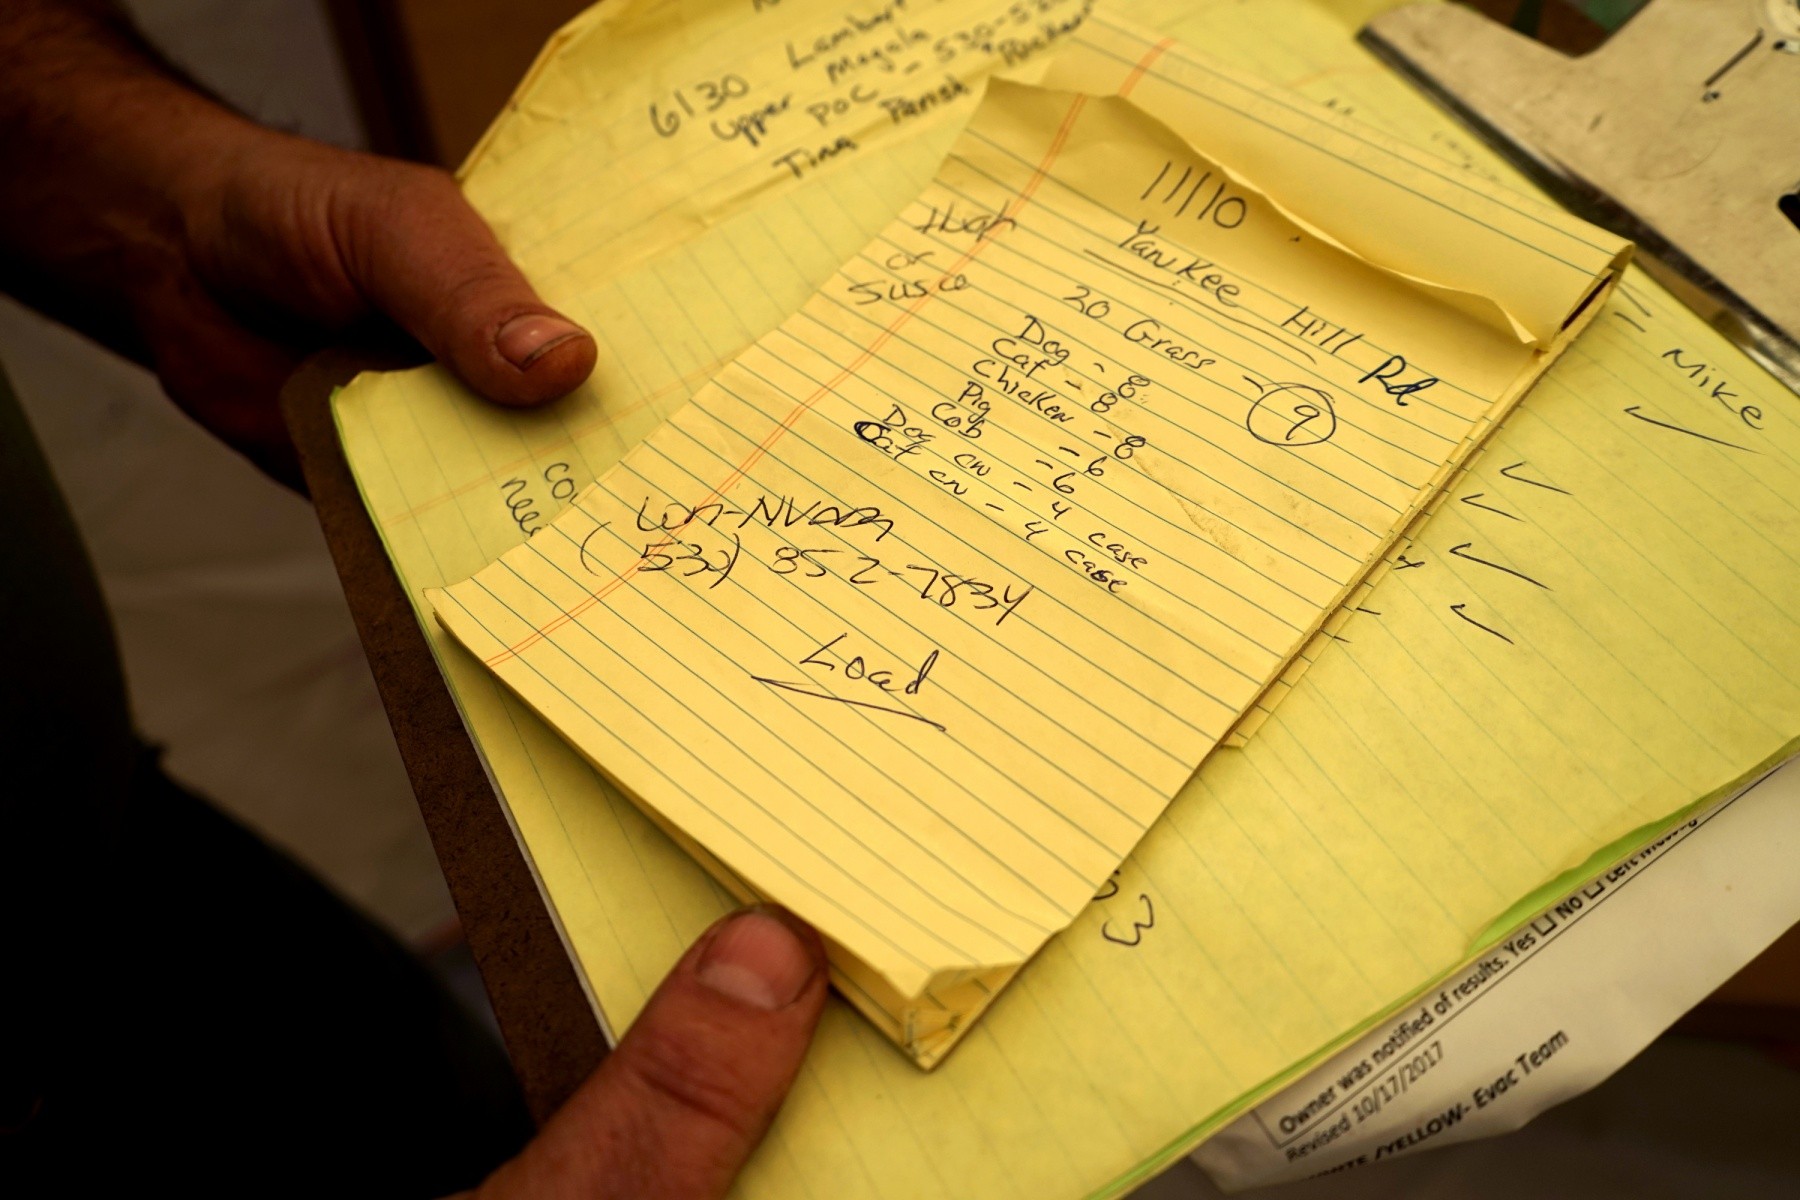 6130 Lambert
Upper Magalia
POC - 530-52
Tina Parish
11/10
Hugh
of
Susie
Yankee Hill Rd
20 Grass - 9
Dog - 8
Cat - 8
Chicken - 8
Pig - 6
Cob - 6
Dog cn - 4 case
Cat cn - 4 case
(530) 852-7834
Load
Mike
Owner was notified of results. Yes ☐ No ☐ Left
Revised 10/17/2017
WHITE /YELLOW- Evac Team